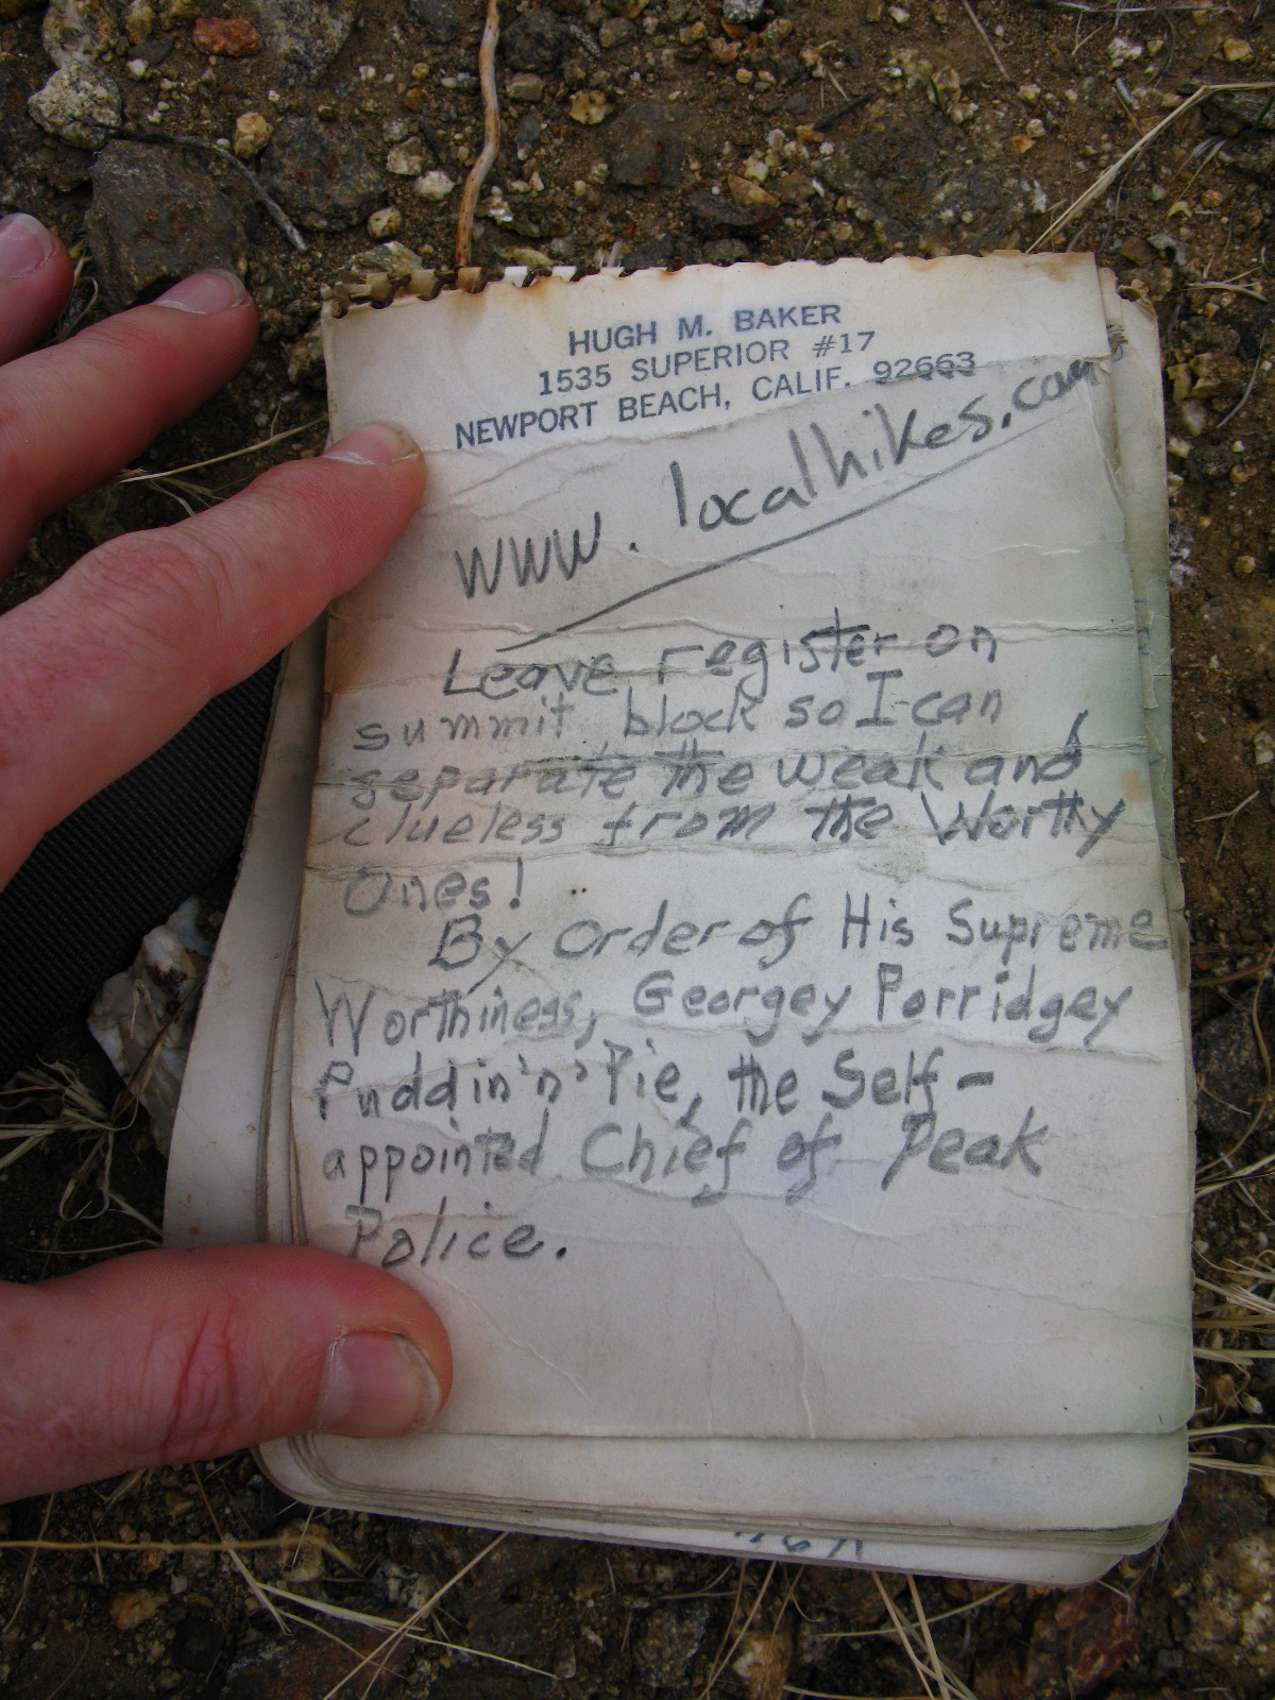 HUGH M. BAKER
1535 SUPERIOR #17
NEWPORT BEACH, CALIF. 92663
www.localhikes.com
Leave register on
summit block so I can
separate the weak and
clueless from the Worthy
Ones!
By Order of His Supreme
Worthiness, Georgey Porridgey
Puddin'n' Pie, the Self-
appointed Chief of Peak
Police.